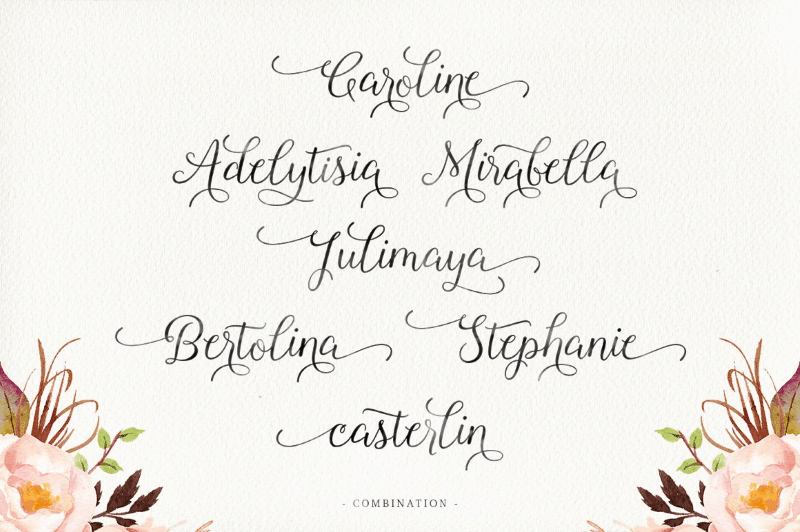 Caroline
Adelytisia Mirabella
Julimaya
Bertolina Stephanie
casterlin
- COMBINATION -